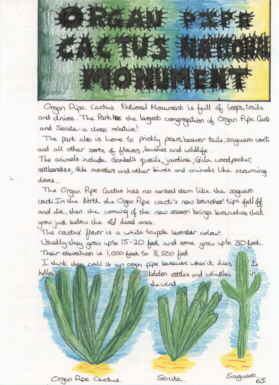 ORGAN PIPE
CACTUS NATION
MONUMENT
Organ Pipe Cactus National Monument is full of loops, trails
and drives. The Park has the largest congregation of Organ Pipe Cacti
and Senita - a close relative!
The park also is home to prickly pears, beaver tails, saguaro cacti
and all other sorts of flowers, bushes and wildlife.
The animals include Gambel's quails, javelina, Gila woodpecker,
rattlesnakes, and other birds and animals like mourning
doves.
The Organ Pipe Cactus has no central stem like the saguaro
cacti. In the North the Organ Pipe cacti's new branches' tips fall off
and die, then the coming of the new season brings branches that
grow just below the old dead ones.
The cactus flower is a white purple lavender colour.
Usually they grow up to 15-20 feet and some grow up to 30 feet.
Their elevation is 1,000 feet to 3,500 feet
I think they call it an organ pipe because when it dies
rattles and whistles
the wind.
Organ Pipe Cactus.
Senita.
Saguaro.
65